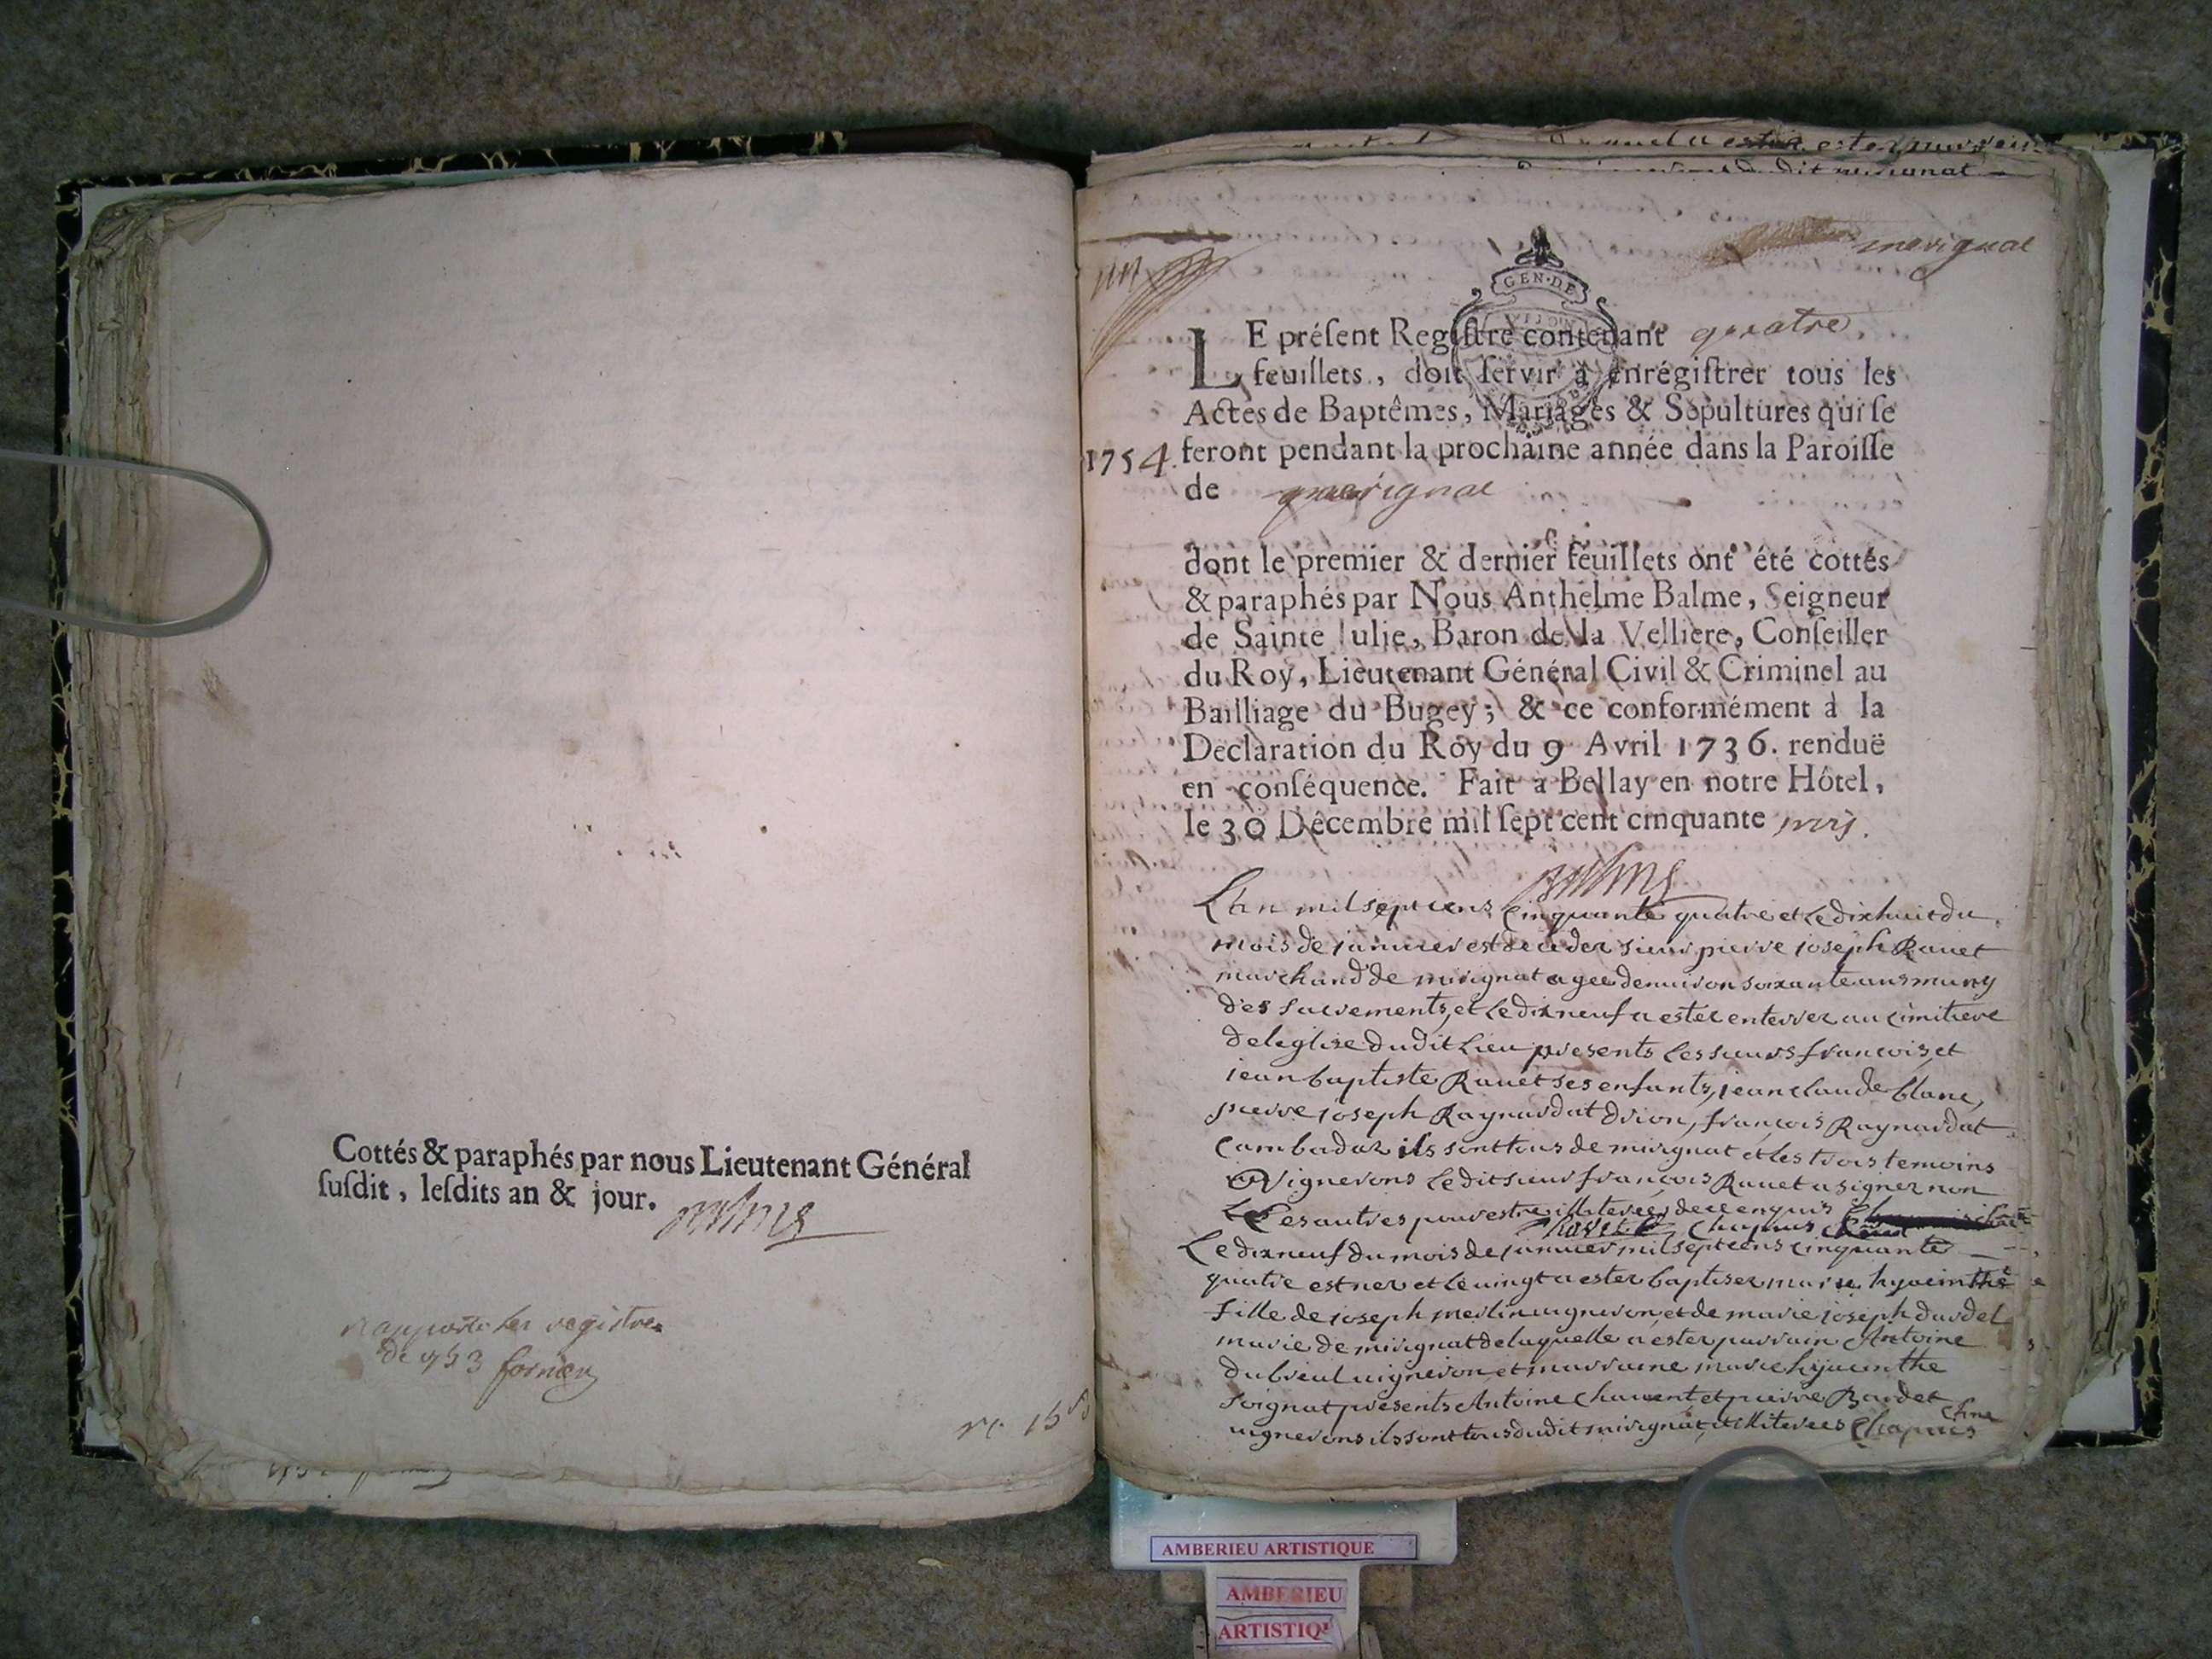 Cottés & paraphés par nous Lieutenant Général
ſuſdit, leſdits an & jour.
registre
de 1753
marignat
GEN·DE
LE préſent Regiſtre contenant quatre
feuillets, doit ſervir à enrégiſtrer tous les
Actes de Baptêmes, Mariages & Sépultures qui ſe
1754. feront pendant la prochaine année dans la Paroiſſe
de marignat
dont le premier & dernier feuillets ont été cottés
& paraphés par Nous Anthelme Balme, Seigneur
de Sainte Julie, Baron de la Velliere, Conſeiller
du Roy, Lieutenant Général Civil & Criminel au
Bailliage du Bugey; & ce conformément à la
Declaration du Roy du 9 Avril 1736. renduë
en conſéquence. Fait à Bellay en notre Hôtel,
le 30 Décembre mil ſept cent cinquante trois.
Balme
L'an mil sept cens cinquante quatre et le dixhuit du
mois de janvier est deceder sieur pierre joseph Ravet
marchand de mirignat agee denviron soixante ans muny
des sacrements, et le dix neuf a ester enterrer au cimitiere
de leglise dudit lieu presents les sieurs francois et
jean baptiste Ravet ses enfants, jean claude blanc,
pierre joseph Raynardat drion, francois Raynardat
cambadaz ils sont tous de mirignat et les trois temoins
vignerons le dit sieur francois Ravet a signer non
les autres pour estre illiterées de ce enquis
Ravet Chapuis
Le dix neuf du mois de janvier mil sept cens cinquante
quatre est ner et le vingt a ester baptiser marie hyacinthe
fille de joseph merlin vigneron et de marie joseph dardel
marie de mirignat de laquelle a ester parrain Antoine
dubreul vigneron et marraine marie hyacinthe
soignat presents Antoine Chavent et pierre Bardet
vignerons ils sont tous dudit mirignat, et illiterees Chapuis
AMBERIEU ARTISTIQUE
AMBERIEU
ARTISTIQ